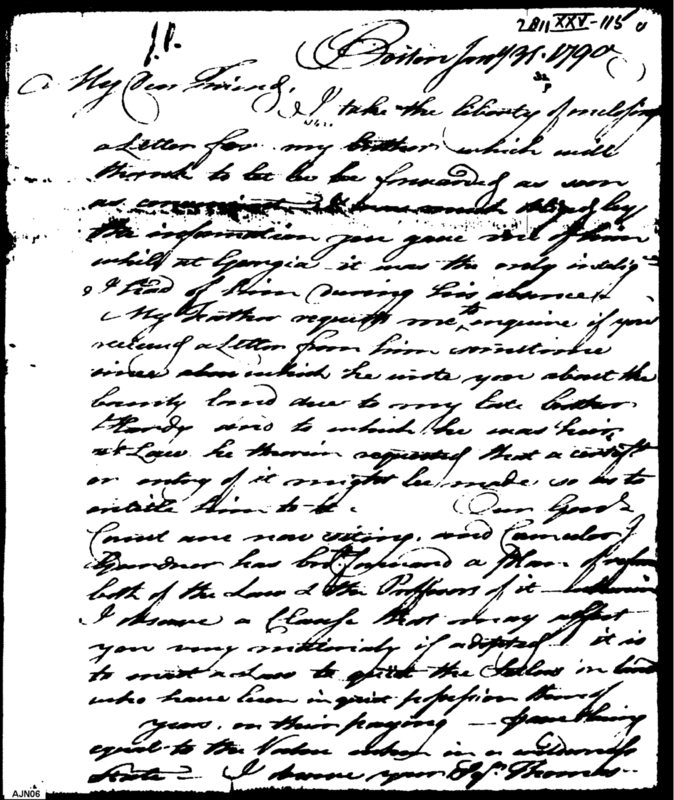 2811 XXV-115
Boston Jany 31. 1790
My Dear Friend,
I take the liberty of inclosing
a Letter for my brother which will
thank to let be be forwarded as soon
as convenient I was much obliged by
the information you gave me of him
while at Georgia it was the only intelige
I had of him during his absence.
My Father requests me to enquire if you
received a Letter from him sometime
since which he wrote you about the
bounty land due to my late brother
Hardy and to which he was heir
at Law he therein requested that a certift
or entry of it might be made so as to
entitle him to it. Our Genl
Court are now siting, and Councelor
Gardner has brot forward a Plan of reform
both of the Law & the Professors of it
I observe a Clause that may affect
you very materialy if adopted it is
to
who have been in quiet possession thereof
years, on their paying something
equal to the Value when in a wilderness
State - I observe your Thomas
AJN06